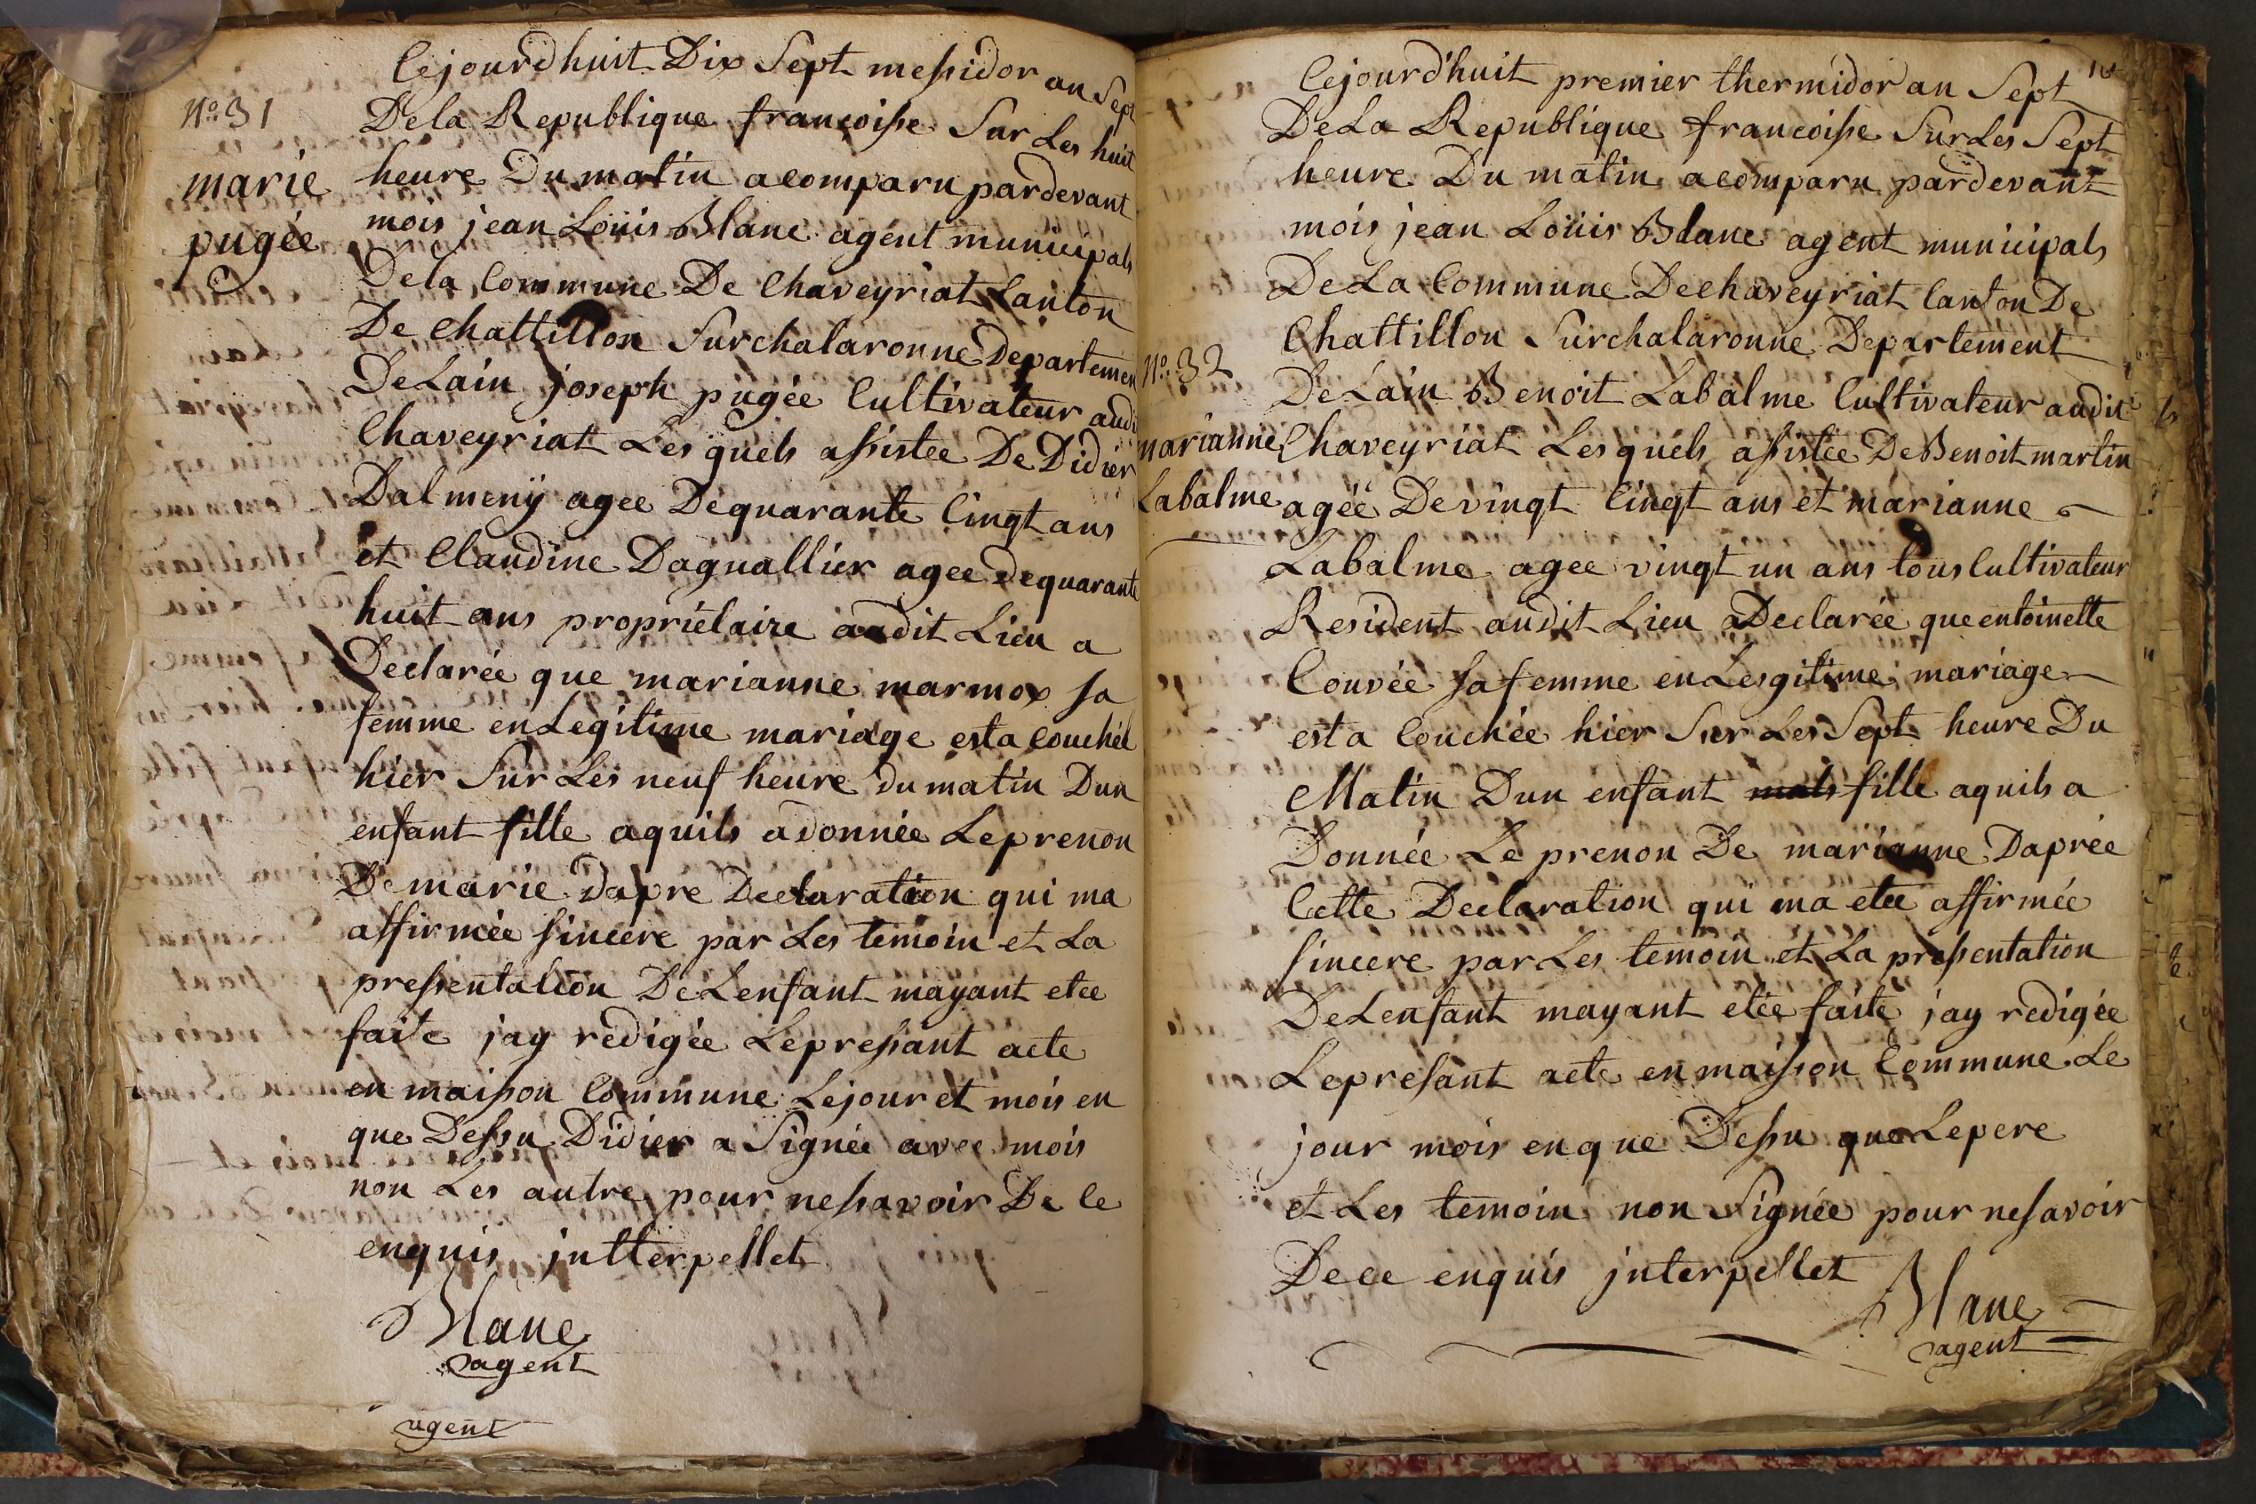 N.o 31
marie
pugée
Cejourdhuit Dix Sept messidor an Sept
Dela Republique francoisse Sur Les huit
heure Du matin acomparu pardevant
mois jean Loüis Blanc agent municipals
Dela Commune De Chaveyriat Canton
De Chattillon Surchalaronne Departemen
DeLain joseph pugée Cultivateur audi
Chaveyriat Les quels assistee De Didier
Dalmenÿ agee Dequarante Cinqt ans
et Claudine Daguallier agee dequarante
huit ans propriétaire audit Lieu a
Declarée que marianne marmox sa
femme en Legitime mariage esta Couchée
hier Sur Les neuf heure du matin Dun
enfant fille aquils adonnée Leprenon
De marie dapre Declaration qui ma
affirmée sincere par Les temoin et La
pressentation DeLenfant mayant etee
faite jay redigée Lepressant acte
en maisson Commune Lejour et mois en
que Dessu Didier a Signée avec mois
non Les autre pour nessavoir De ce
enquis jntterpellet
Blanc
agent
agent
Cejourd'huit premier thermidor an Sept
DeLa Republique francoisse Sur Les Sept
heure Du matin acomparu pardevant
mois jean Loüis Blanc agent municipals
DeLa Commune Dechaveyriat Canton De
Chattillon Surchalaronne Departement
N.o 32
marianne
Labalme
DeLain Benoit Labalme Cultivateur audit
Chaveyriat Les quels assistée DeBenoit martin
agée De vingt Cinqt ans et marianne
Labalme agee vingt un ans tous Cultivateur
Resident audit Lieu aDeclarée que entoinette
Couvée sa femme en Lesgitime mariage
esta Couchée hier Sur Les Sept heure Du
Matin Dun enfant mals fille aquils a
Donnée Le prenon De marianne Daprée
Cette Declaration qui ma etee affirmée
sincere par Les temoin et La pressentation
DeLenfant mayant etée faite jay redigée
Lepresant acte en maisson Commune Le
jour mois enque Dessu que Lepere
et Les temoin non Signée pour nesavoir
Dece enquis jnterpellet
Blanc
agent